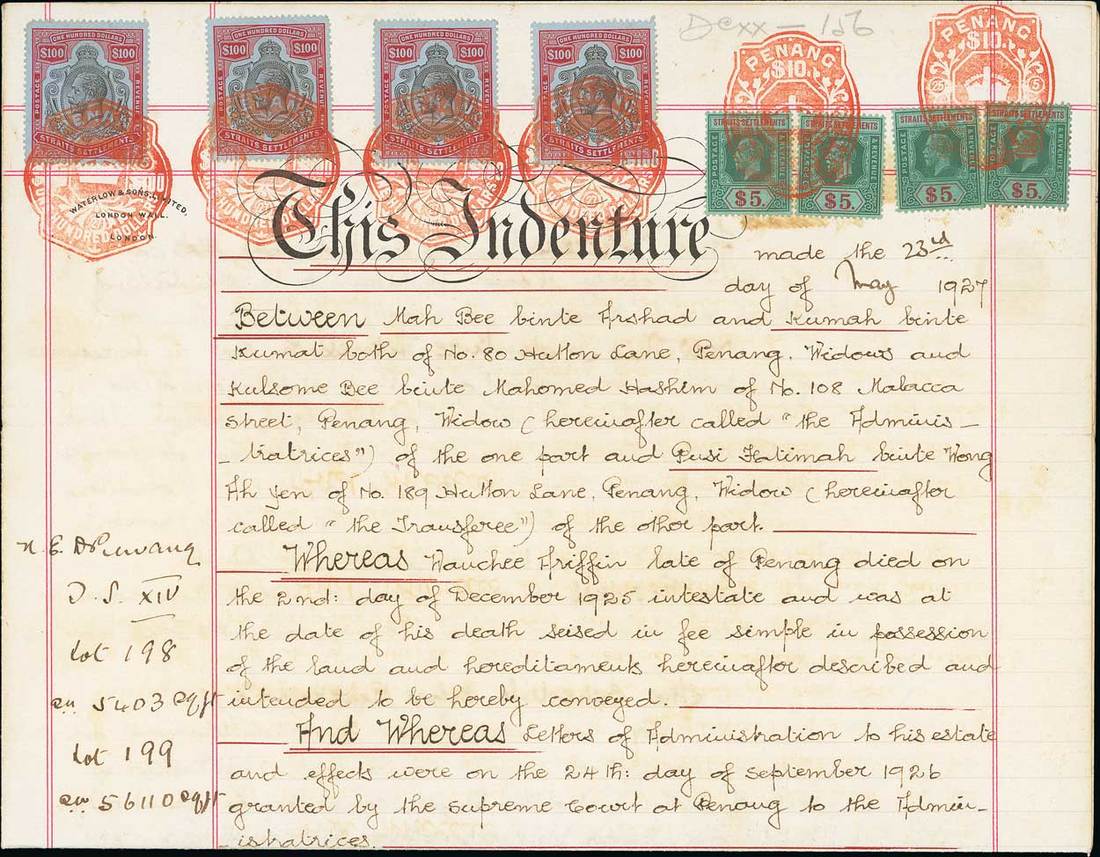 ONE HUNDRED DOLLARS ONE HUNDRED DOLLARS ONE HUNDRED DOLLARS ONE HUNDRED DOLLARS
$100 $100 $100 $100 $100 $100 $100 $100
POSTAGE REVENUE POSTAGE REVENUE POSTAGE REVENUE POSTAGE REVENUE
STRAITS SETTLEMENTS STRAITS SETTLEMENTS STRAITS SETTLEMENTS STRAITS SETTLEMENTS
PENANG
$10.
PENANG
$10.
STRAITS SETTLEMENTS STRAITS SETTLEMENTS STRAITS SETTLEMENTS STRAITS SETTLEMENTS
POSTAGE & REVENUE POSTAGE & REVENUE POSTAGE & REVENUE POSTAGE & REVENUE
$5. $5. $5. $5.
WATERLOW & SONS LIMITED,
LONDON WALL,
LONDON.
This Indenture made the 23rd
day of May 1927
Between Mah Bee binte Arshad and Kumah binte
Kumat both of No. 80 Hutton Lane, Penang, Widows and
Kulsome Bee binte Mahomed Hashim of No. 108 Malacca
Street, Penang, Widow (hereinafter called "the Adminis-
-tratrices") of the one part and Pusi Fatimah binte Wong
Ah Yen of No. 189 Hutton Lane, Penang, Widow (hereinafter
called "the Transferee") of the other part.
Whereas Wanchee Ariffin late of Penang died on
the 2nd: day of December 1925 intestate and was at
the date of his death seised in fee simple in possession
of the land and hereditaments hereinafter described and
intended to be hereby conveyed.
And Whereas Letters of Administration to his estate
and effects were on the 24th: day of September 1926
granted by the Supreme Court at Penang to the Admin-
-istratrices.
N. E. D
T. S. XIV
Lot 198
5403 sq ft
Lot 199
56110 sq ft